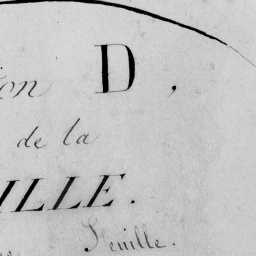 ion D,
de la
ILLE.
Feuille.